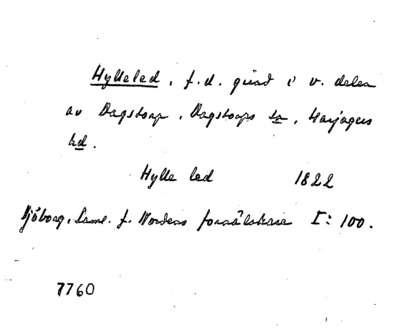 Hylleled, f.d. grind i v. delen
av Dagstorp, Dagstorps sn, Harjagers
hd.
Hylle led 1822
Sjöborg, Saml. f. Nordens fornälskare I: 100.
7760